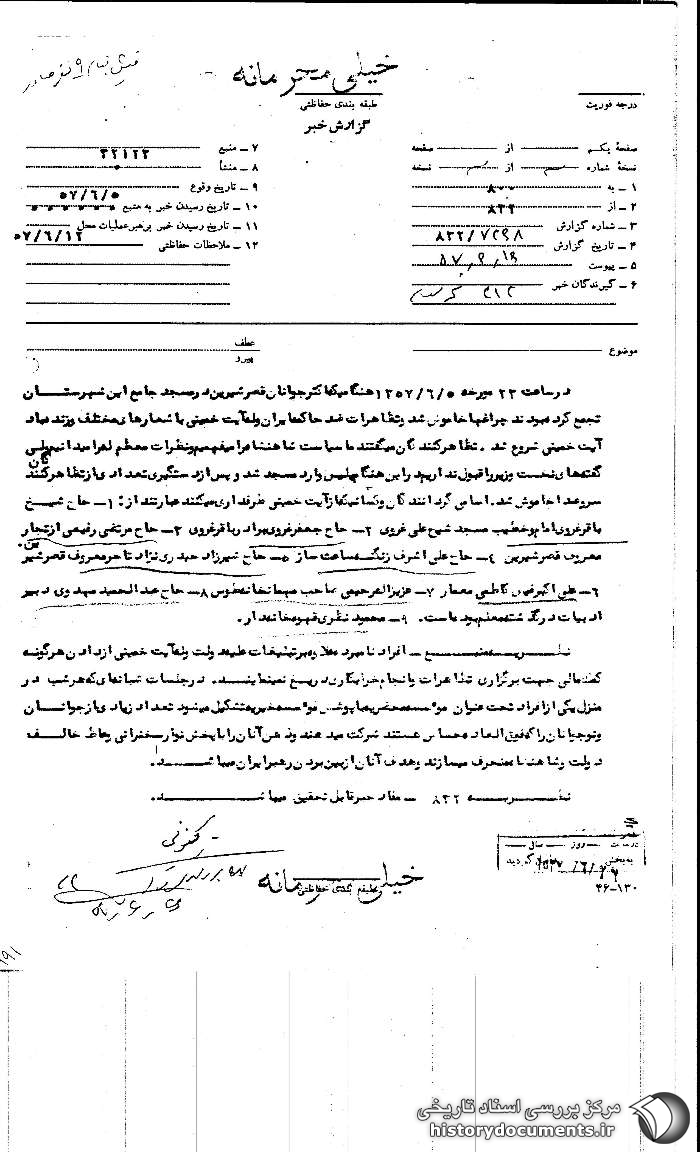 خیلی محرمانه
طبقه بندی حفاظتی
گزارش خبر
درجه فوریت
صفحهٔ یکم از صفحه
نسخهٔ شماره از نسخه
۱ ـ به ۸۰۰
۲ ـ از ۸۳۲
۳ ـ شماره گزارش ۸۳۲/۷۲۹۸
۴ ـ تاریخ گزارش
۵ ـ پیوست
۶ ـ گیرندگان خبر ۳۱۲
۷ ـ منبع ۳۲۱۲۲
۸ ـ منشأ
۹ ـ تاریخ وقوع ۵۷/۶/۵
۱۰ ـ تاریخ رسیدن خبر به منبع
۱۱ ـ تاریخ رسیدن خبر برهبر عملیات محل ۵۷/۶/۱۲
۱۲ ـ ملاحظات حفاظتی
موضوع
عطف
پیرو
در ساعت ۲۲ مورخه ۱۳۵۷/۶/۵ هنگامیکه اکثر جوانان قصرشیرین در مسجد جامع این شهرستان
تجمع کرده بودند چراغها خاموش شد و تظاهرات ضد حاکم ایران و له آیت خمینی با شعارهای مختلف و زنده باد
آیت خمینی شروع شد . تظاهرکنندگان میگفتند ما سیاست شاهنشاه را میفهمیم و نظرات معظم له را میدانیم ولی
گفته‌های نخست وزیر را قبول نداریم در این هنگام پلیس وارد مسجد شد و پس از دستگیری تعدادی از تظاهرکنندگان
سر و صدا خاموش شد. اسامی گردانندگان و کسانیکه از آیت خمینی طرفداری میکنند عبارتند از: ۱ـ حاج شیخ
باقر غروی امام و خطیب مسجد شیخ علی غروی ۲ـ حاج جعفر غروی برادر باقر غروی ۳ـ حاج مرتضی رفیعی از تجار
معروف قصرشیرین ۴ـ حاج علی اشرف زنگنه ساعت ساز ۵ـ حاج شیرزاد حیدری نژاد تاجر معروف قصرشیرین.
۶ـ علی اکبر کاظمی معمار ۷ـ عزیزاله رحیمی صاحب مهمانخانه طوس ۸ـ حاج عبدالحمید مهدوی دبیر
ادبیات در گذشته معلم بوده است. ۹ـ محمود نظری قهوه خانه دار.
نظریه منبع ـ افراد نامبرده علاوه بر تبلیغات علیه دولت و له آیت خمینی از دادن هرگونه
کمک مالی جهت برگزاری تظاهرات و انجام خرابکاری دریغ نمینمایند. در جلسات شبانه‌ای که هر شب در
منزل یکی از افراد تحت عنوان موسسه خیریه با پوشش موسسه خیریه تشکیل میشود تعداد زیادی از جوانان
و نوجوانان را که فوق العاده حساس هستند شرکت میدهند و ذهن آنان را با پخش نوار سخنرانی وعاظ مخالف
دولت و شاهنشاه منحرف میسازند و هدف آنان از بین بردن رهبر ایران میباشد.
نظریه ۸۳۲ ـ مفاد خبر قابل تحقیق میباشد.
خیلی محرمانه
طبقه بندی حفاظتی
ساعت روز سال
به بخش گردید
۴۶-۱۳۰
۱۹۱
مرکز بررسی اسناد تاریخی
historydocuments.ir